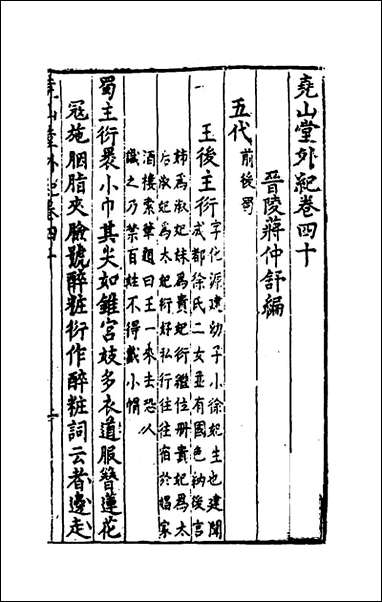 堯山堂外紀卷四十
晉陵蔣仲舒編
五代前後蜀
王後主衍字化源建幼子小徐妃生也建聞
成都徐氏二女並有國色納後宮
姊為淑妃妹為貴妃衍繼位冊貴妃為太
后淑妃為太妃衍好私行往往宿於娼家
酒樓索筆題曰王一來去恐人
識之乃禁百姓不得戴小帽
蜀主衍裹小巾其尖如錐宮妓多衣道服簪蓮花
冠施胭脂夾臉號醉粧衍作醉粧詞云者邊走